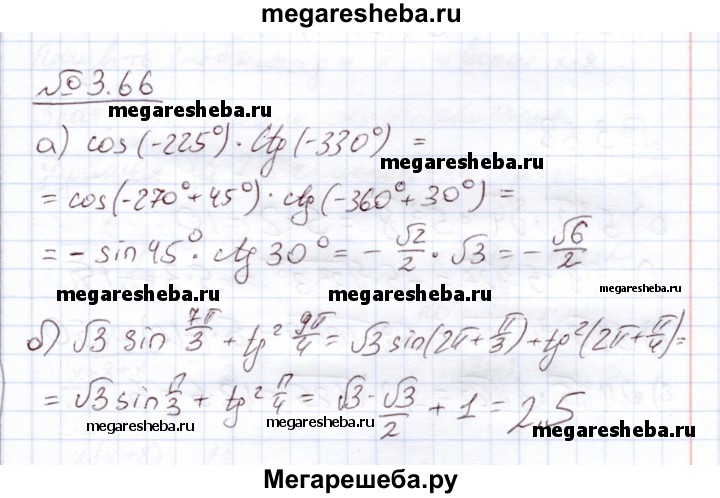 megaresheba.ru
№ 3.66
megaresheba.ru
а) cos(-225°) · ctg(-330°) =
megaresheba.ru
= cos(-270° + 45°) · ctg(-360° + 30°) =
= - sin 45° · ctg 30° = - √2/2 · √3 = - √6/2
megaresheba.ru megaresheba.ru megaresheba.ru
б) √3 sin 7π/3 + tg² 9π/4 = √3 sin(2π + π/3) + tg²(2π + π/4) =
= √3 sin π/3 + tg² π/4 = √3 · √3/2 + 1 = 2,5
megaresheba.ru megaresheba.ru megaresheba.ru
Мегарешеба.ру